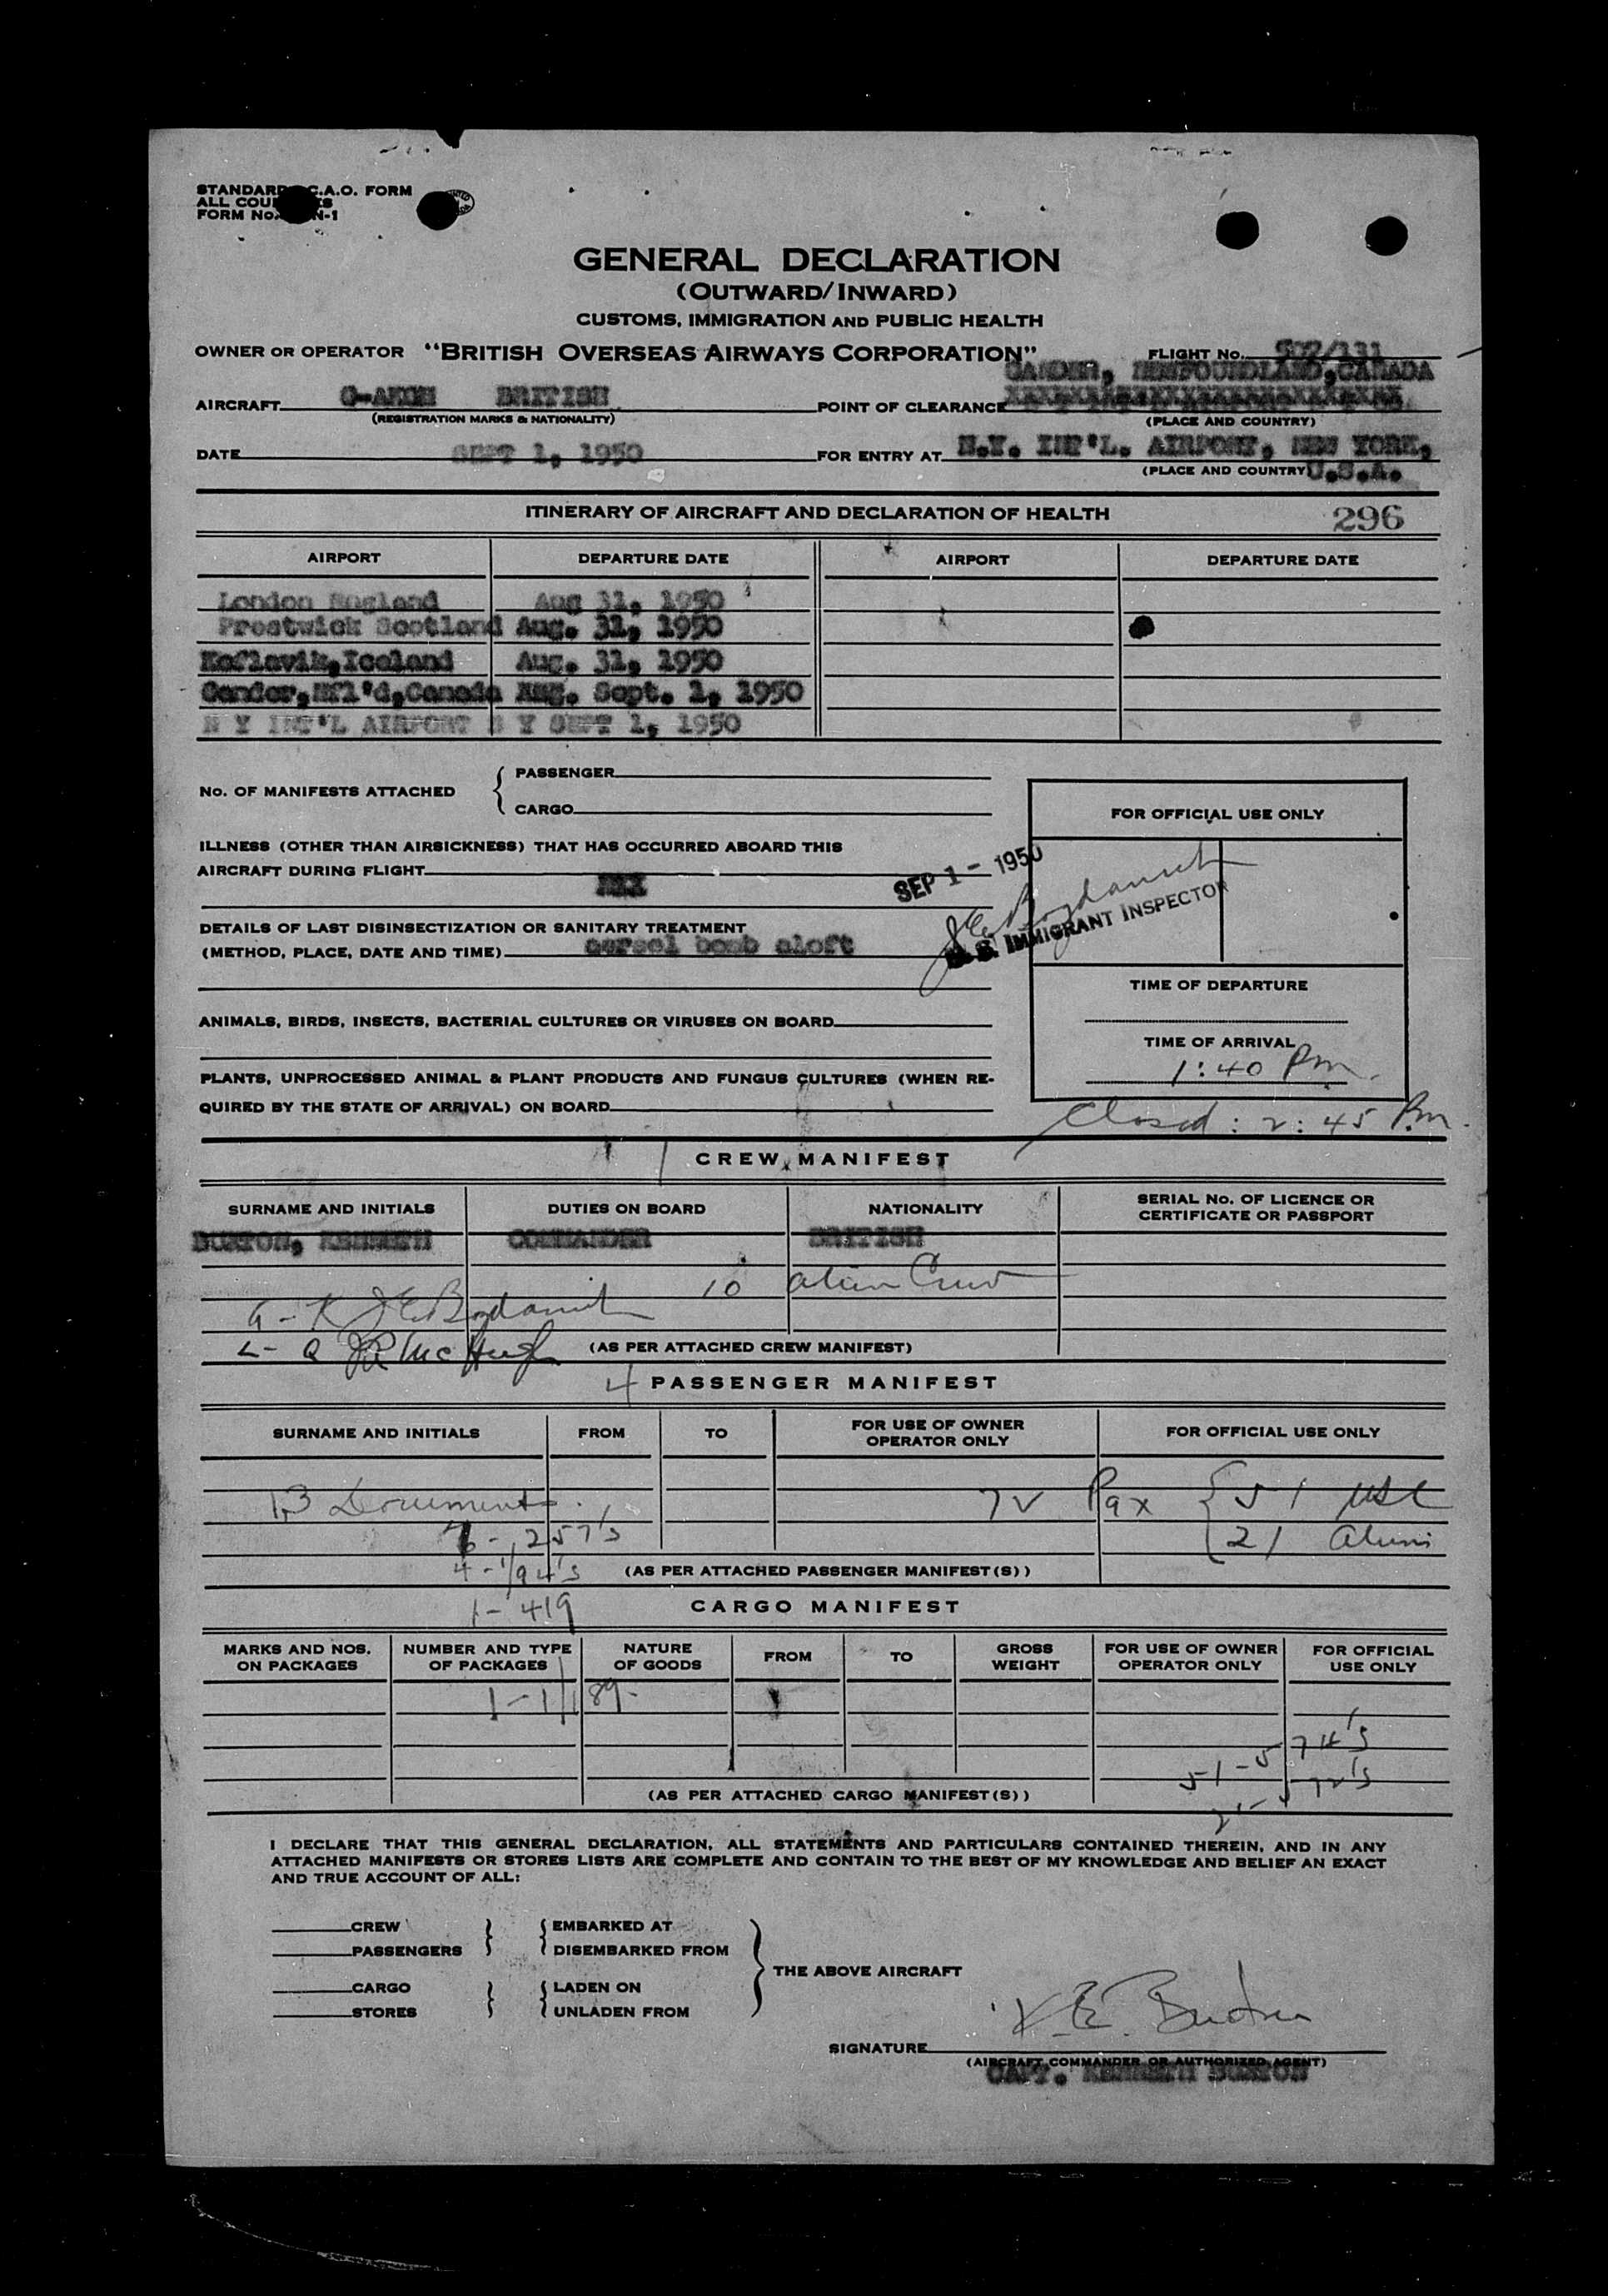 STANDARD C.A.O. FORM
ALL COU S
FORM No. N-1
GENERAL DECLARATION
(OUTWARD/INWARD)
CUSTOMS, IMMIGRATION AND PUBLIC HEALTH
OWNER OR OPERATOR "BRITISH OVERSEAS AIRWAYS CORPORATION" FLIGHT No. 502/131
GANDER, NEWFOUNDLAND, CANADA
AIRCRAFT BRITISH POINT OF CLEARANCE
(REGISTRATION MARKS & NATIONALITY) (PLACE AND COUNTRY)
DATE SEPT 1, 1950 FOR ENTRY AT N.Y. INT'L. AIRPORT, NEW YORK,
(PLACE AND COUNTRY) U.S.A.
ITINERARY OF AIRCRAFT AND DECLARATION OF HEALTH 296
AIRPORT DEPARTURE DATE AIRPORT DEPARTURE DATE
London England Aug 31, 1950
Prestwick Scotland Aug. 31, 1950
Keflavik,Iceland Aug. 31, 1950
Gander,Nfl'd,Canada Sept. 1, 1950
N Y INT'L AIRPORT N Y SEPT 1, 1950
PASSENGER
No. OF MANIFESTS ATTACHED
CARGO
FOR OFFICIAL USE ONLY
ILLNESS (OTHER THAN AIRSICKNESS) THAT HAS OCCURRED ABOARD THIS
AIRCRAFT DURING FLIGHT
SEP 1 - 1950
DETAILS OF LAST DISINSECTIZATION OR SANITARY TREATMENT
(METHOD, PLACE, DATE AND TIME) aersol bomb aloft
U. S. IMMIGRANT INSPECTOR
TIME OF DEPARTURE
ANIMALS, BIRDS, INSECTS, BACTERIAL CULTURES OR VIRUSES ON BOARD
TIME OF ARRIVAL
1:40 Pm.
PLANTS, UNPROCESSED ANIMAL & PLANT PRODUCTS AND FUNGUS CULTURES (WHEN RE-
QUIRED BY THE STATE OF ARRIVAL) ON BOARD
Closed : 2:45 Pm.
CREW MANIFEST
SURNAME AND INITIALS DUTIES ON BOARD NATIONALITY SERIAL No. OF LICENCE OR
CERTIFICATE OR PASSPORT
BUXTON, KENNETH COMMANDER BRITISH
10 alien Crew
(AS PER ATTACHED CREW MANIFEST)
4 PASSENGER MANIFEST
SURNAME AND INITIALS FROM TO FOR USE OF OWNER
OPERATOR ONLY FOR OFFICIAL USE ONLY
13 Documents. 72 Pax 51 USC
257's 21 Aliens
4 - 194's (AS PER ATTACHED PASSENGER MANIFEST(S))
1 - 419 CARGO MANIFEST
MARKS AND NOS.
ON PACKAGES NUMBER AND TYPE
OF PACKAGES NATURE
OF GOODS FROM TO GROSS
WEIGHT FOR USE OF OWNER
OPERATOR ONLY FOR OFFICIAL
USE ONLY
51 - 574's
21 - 572's
(AS PER ATTACHED CARGO MANIFEST(S))
I DECLARE THAT THIS GENERAL DECLARATION, ALL STATEMENTS AND PARTICULARS CONTAINED THEREIN, AND IN ANY
ATTACHED MANIFESTS OR STORES LISTS ARE COMPLETE AND CONTAIN TO THE BEST OF MY KNOWLEDGE AND BELIEF AN EXACT
AND TRUE ACCOUNT OF ALL:
CREW EMBARKED AT
PASSENGERS DISEMBARKED FROM
THE ABOVE AIRCRAFT
CARGO LADEN ON
STORES UNLADEN FROM
K.E. Buxton
SIGNATURE
(AIRCRAFT COMMANDER OR AUTHORIZED AGENT)
CAPT. KENNETH BUXTON